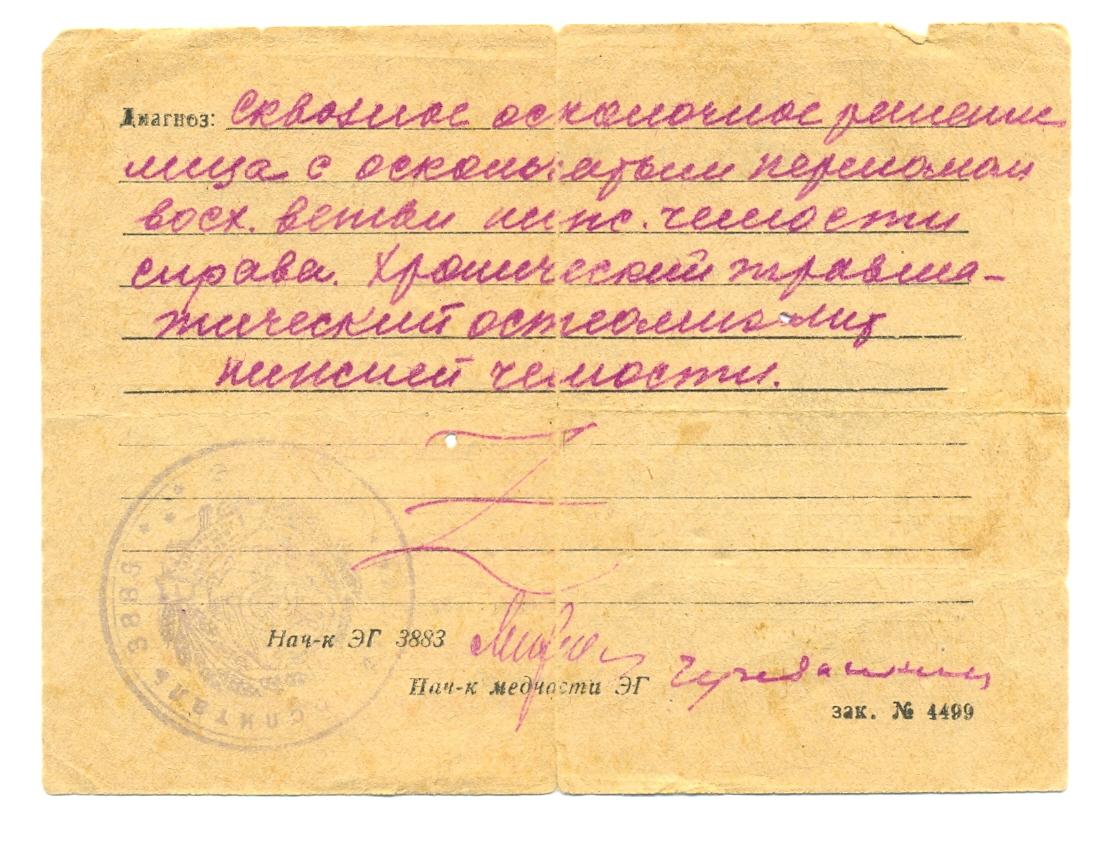 Диагноз: Сквозное осколочное ранение
лица с оскольчатым переломом
восх. ветви нижн. челюсти
справа. Хронический травма-
тический остеомиэлит
нижней челюсти.
Нач-к ЭГ 3883
Нач-к медчасти ЭГ
зак. № 4499
СПИТАЛЬ 3883